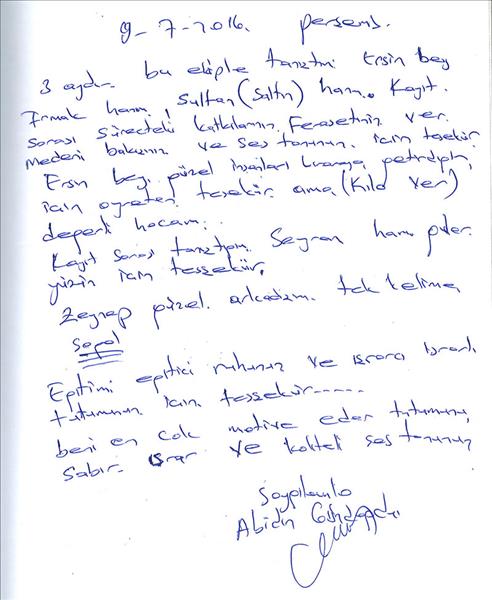 9-7-2016. persems.
3 aydır. bu ekiple tanıtmı Ersin bey
Irmak hanm, Sultan (Saltn) hanm. Kayıt.
sorası sürecteki katkılarının, Ferasetinin ver.
medeni bakısının ve ses tonunun. icin teseкür.
Ersin bey. güzel insanları biraraya getirdigin,
icin ogreten. tesekür. ama (Kilo ver)
degerli hocam..
Kayıt sorası tanıtıgım. Seyran hanm güler.
yüzün icin tessekür,
Zeynep güzel. arkadasım. tek kelime
Sogol
Egitimi egitici ruhunun ve ısrarcı ısrarlı
tutumunun icin tessekür-----
beni en cok motive eder tutumunu,
Sabır. ısrar ve kaliteli ses tonunun
Saygılarımla
Abidin